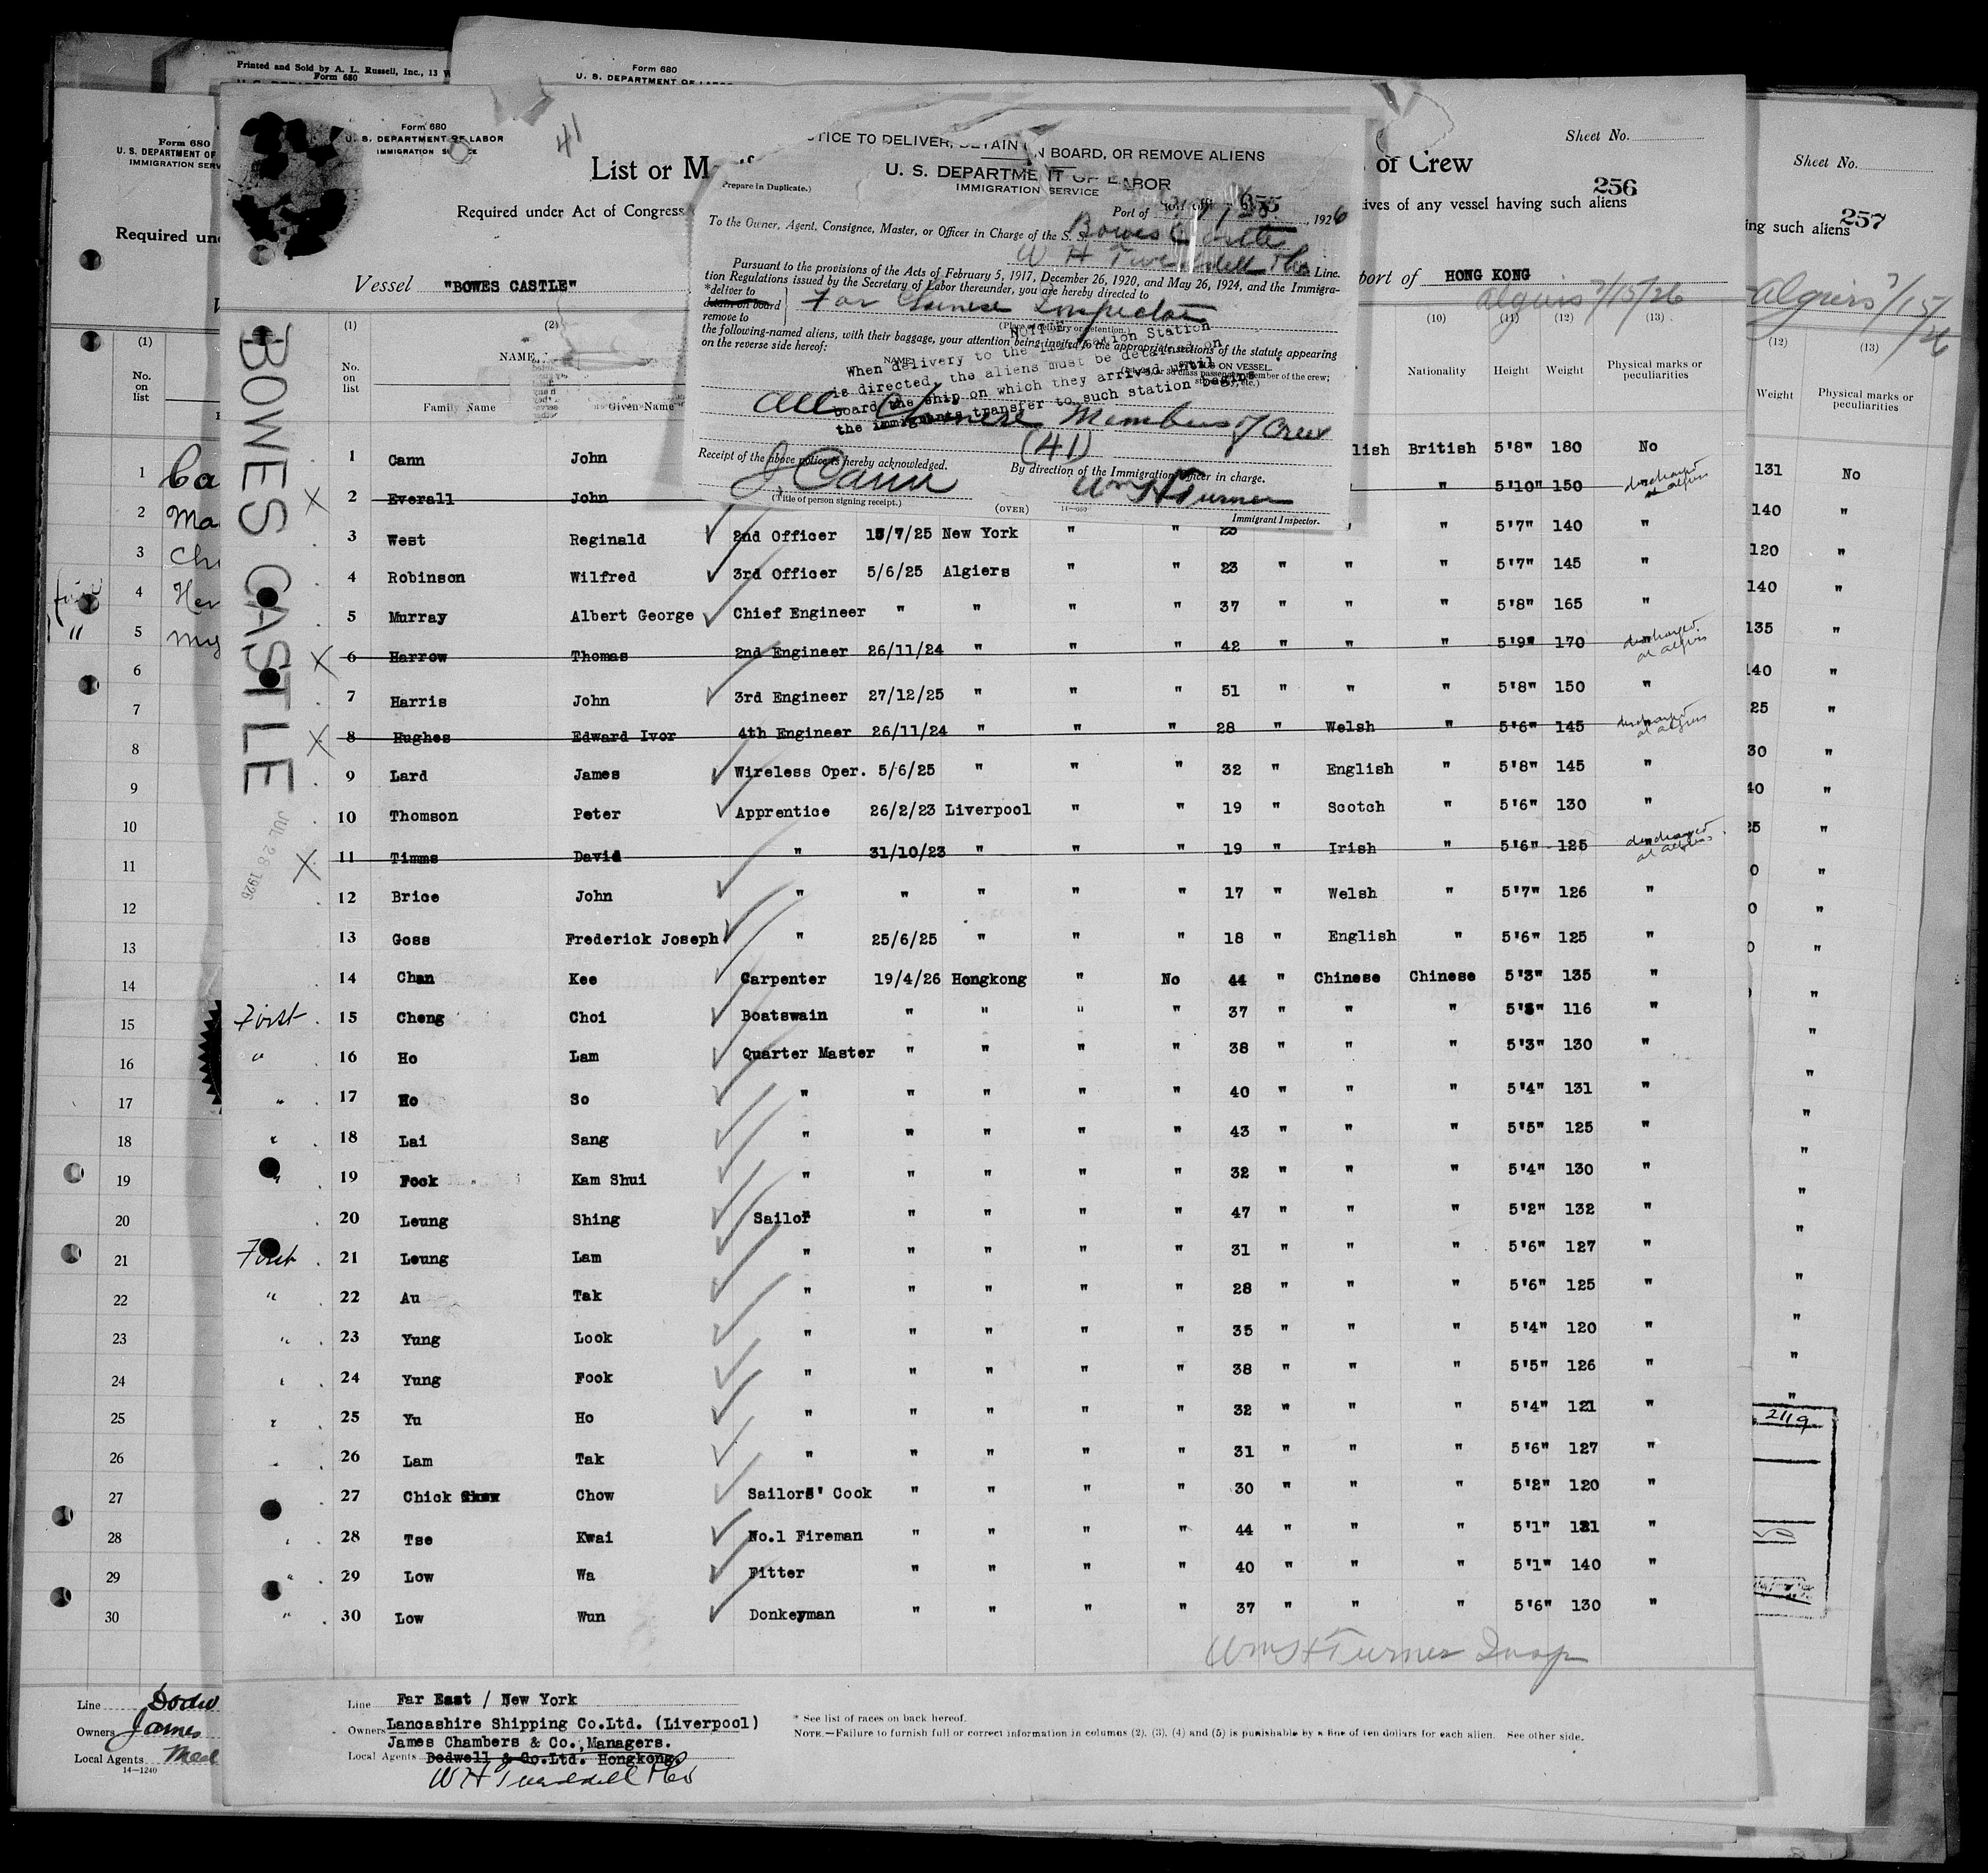 Printed and Sold by A. L. Russell, Inc., 13 W
Form 680
Form 680
U. S. DEPARTMENT OF LABOR
Form 680
U. S. DEPARTMENT OF
IMMIGRATION SERV
Required un
Form 680
U. S. DEPARTMENT OF LABOR
IMMIGRATION
41
List or M
of Crew
Sheet No.
256
Required under Act of Congress
tives of any vessel having such aliens
Vessel "BOWES CASTLE"
port of HONG KONG
Algiers 7/15/26
Sheet No.
ing such aliens
257
Algiers 7/15/26
TICE TO DELIVER, DETAIN ON BOARD, OR REMOVE ALIENS
U. S. DEPARTMENT OF LABOR
IMMIGRATION SERVICE
Prepare in Duplicate.)
655
Port of , 1926
To the Owner, Agent, Consignee, Master, or Officer in Charge of the S. S. Bowes Castle
Line.
Pursuant to the provisions of the Acts of February 5, 1917, December 26, 1920, and May 26, 1924, and the Immigra-
tion Regulations issued by the Secretary of Labor thereunder, you are hereby directed to
*deliver to
detain on board
remove to
For Chinese Inspector
(Place of delivery or detention.)
the following-named aliens, with their baggage, your attention being invited to the appropriate sections of the statute appearing
on the reverse side hereof:
NOTICE
When delivery to the Immigration Station
is directed, the aliens must be detained on
board the ship on which they arrived until
the immigrants transfer to such station begins
NAME.
ON VESSEL.
All Chinese Members of Crew
(41)
Receipt of the above notice is hereby acknowledged.
By direction of the Immigration Officer in charge.
J. Cann
Wm H Turner
(Title of person signing receipt.)
(OVER)
Immigrant Inspector.
BOWES CASTLE
JUL 28 1926
(1) (2) (10) (11) (12) (13)
No. on list
NAME.
Family Name Given Name
Nationality Height Weight Physical marks or peculiarities
1 Cann John lish British 5'8" 180 No
X 2 Everall John " 5'10" 150 discharged at Algiers
3 West Reginald 2nd Officer /7/25 New York " " " 5'7" 140 "
4 Robinson Wilfred 3rd Officer 5/6/25 Algiers " " 23 " " " 5'7" 145 "
5 Murray Albert George Chief Engineer " " " " 37 " " " 5'8" 165 "
X 6 Harrow Thomas 2nd Engineer 26/11/24 " " " 42 " " " 5'9" 170 " discharged at Algiers
7 Harris John 3rd Engineer 27/12/25 " " " 51 " " " 5'8" 150 "
X 8 Hughes Edward Ivor 4th Engineer 26/11/24 " " " 28 " Welsh " 5'6" 145 " discharged at Algiers
9 Lard James Wireless Oper. 5/6/25 " " " 32 " English " 5'8" 145 "
10 Thomson Peter Apprentice 26/2/23 Liverpool " " 19 " Scotch " 5'6" 130 "
X 11 Timms David " 31/10/23 " " " 19 " Irish " 5'6" 125 " discharged at Algiers
12 Brice John " " " " " 17 " Welsh " 5'7" 126 "
13 Goss Frederick Joseph " 25/6/25 " " " 18 " English " 5'6" 125 "
14 Chan Kee Carpenter 19/4/26 Hongkong " No 44 " Chinese Chinese 5'3" 135 "
First 15 Cheng Choi Boatswain " " " " 37 " " " 116 "
" 16 Ho Lam Quarter Master " " " " 38 " " " 5'3" 130 "
" 17 Ho So " " " " " 40 " " " 5'4" 131 "
" 18 Lai Sang " " " " " 43 " " " 5'5" 125 "
" 19 Fock Kam Shui " " " " " 32 " " " 5'4" 130 "
20 Leung Shing Sailor " " " " 47 " " " 5'2" 132 "
First 21 Leung Lam " " " " " 31 " " " 5'6" 127 "
" 22 Au Tak " " " " " 28 " " " 5'6" 125 "
" 23 Yung Look " " " " " 35 " " " 5'4" 120 "
" 24 Yung Fook " " " " " 38 " " " 5'5" 126 "
" 25 Yu Ho " " " " " 32 " " " 5'4" 121 "
" 26 Lam Tak " " " " " 31 " " " 5'6" 127 "
27 Chick Chow Sailors' Cook " " " " 30 " " " 5'2" 120 "
" 28 Tse Kwai No.1 Fireman " " " " 44 " " " 5'1" 121 "
" 29 Low Wa Fitter " " " " 40 " " " 5'1" 140 "
" 30 Low Wun Donkeyman " " " " 37 " " " 5'6" 130 "
Wm H Turner Insp
Line Far East / New York
Owners Lancashire Shipping Co.Ltd. (Liverpool)
James Chambers & Co., Managers.
Local Agents Dodwell & Co.Ltd. Hongkong.
* See list of races on back hereof.
NOTE.—Failure to furnish full or correct information in columns (2), (3), (4) and (5) is punishable by a fine of ten dollars for each alien. See other side.
(1)
No. on list
1 Ca
2 Ma
3 Ch
first 4 Hen
" 5 My
6
7
8
9
10
11
12
13
14
15
16
17
18
19
20
21
22
23
24
25
26
27
28
29
30
Line Dodw
Owners James
Local Agents
14—1240
(12) (13)
Weight Physical marks or peculiarities
131 No
140 "
120 "
140 "
135 "
140 "
25 "
30 "
2119